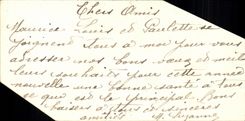 Chers Amis
Maurice Louis et Paulette se
joignent tous à moi pour vous
adresser nos bons vœux et meil
leurs souhaits pour cette année
nouvelle une bonne santé à tous
ce que est le principal Bons
baisers à tous et sincères
amitiés Suzanne